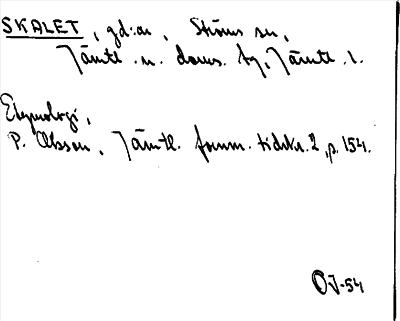 SKALET, gd:ar, Ströms sn,
Jämtl. n. doms. by, Jämtl. l.
Etymologi,
P. Olsson, Jämtl. fornm. tidskr. 2, p. 154.
OJ-54